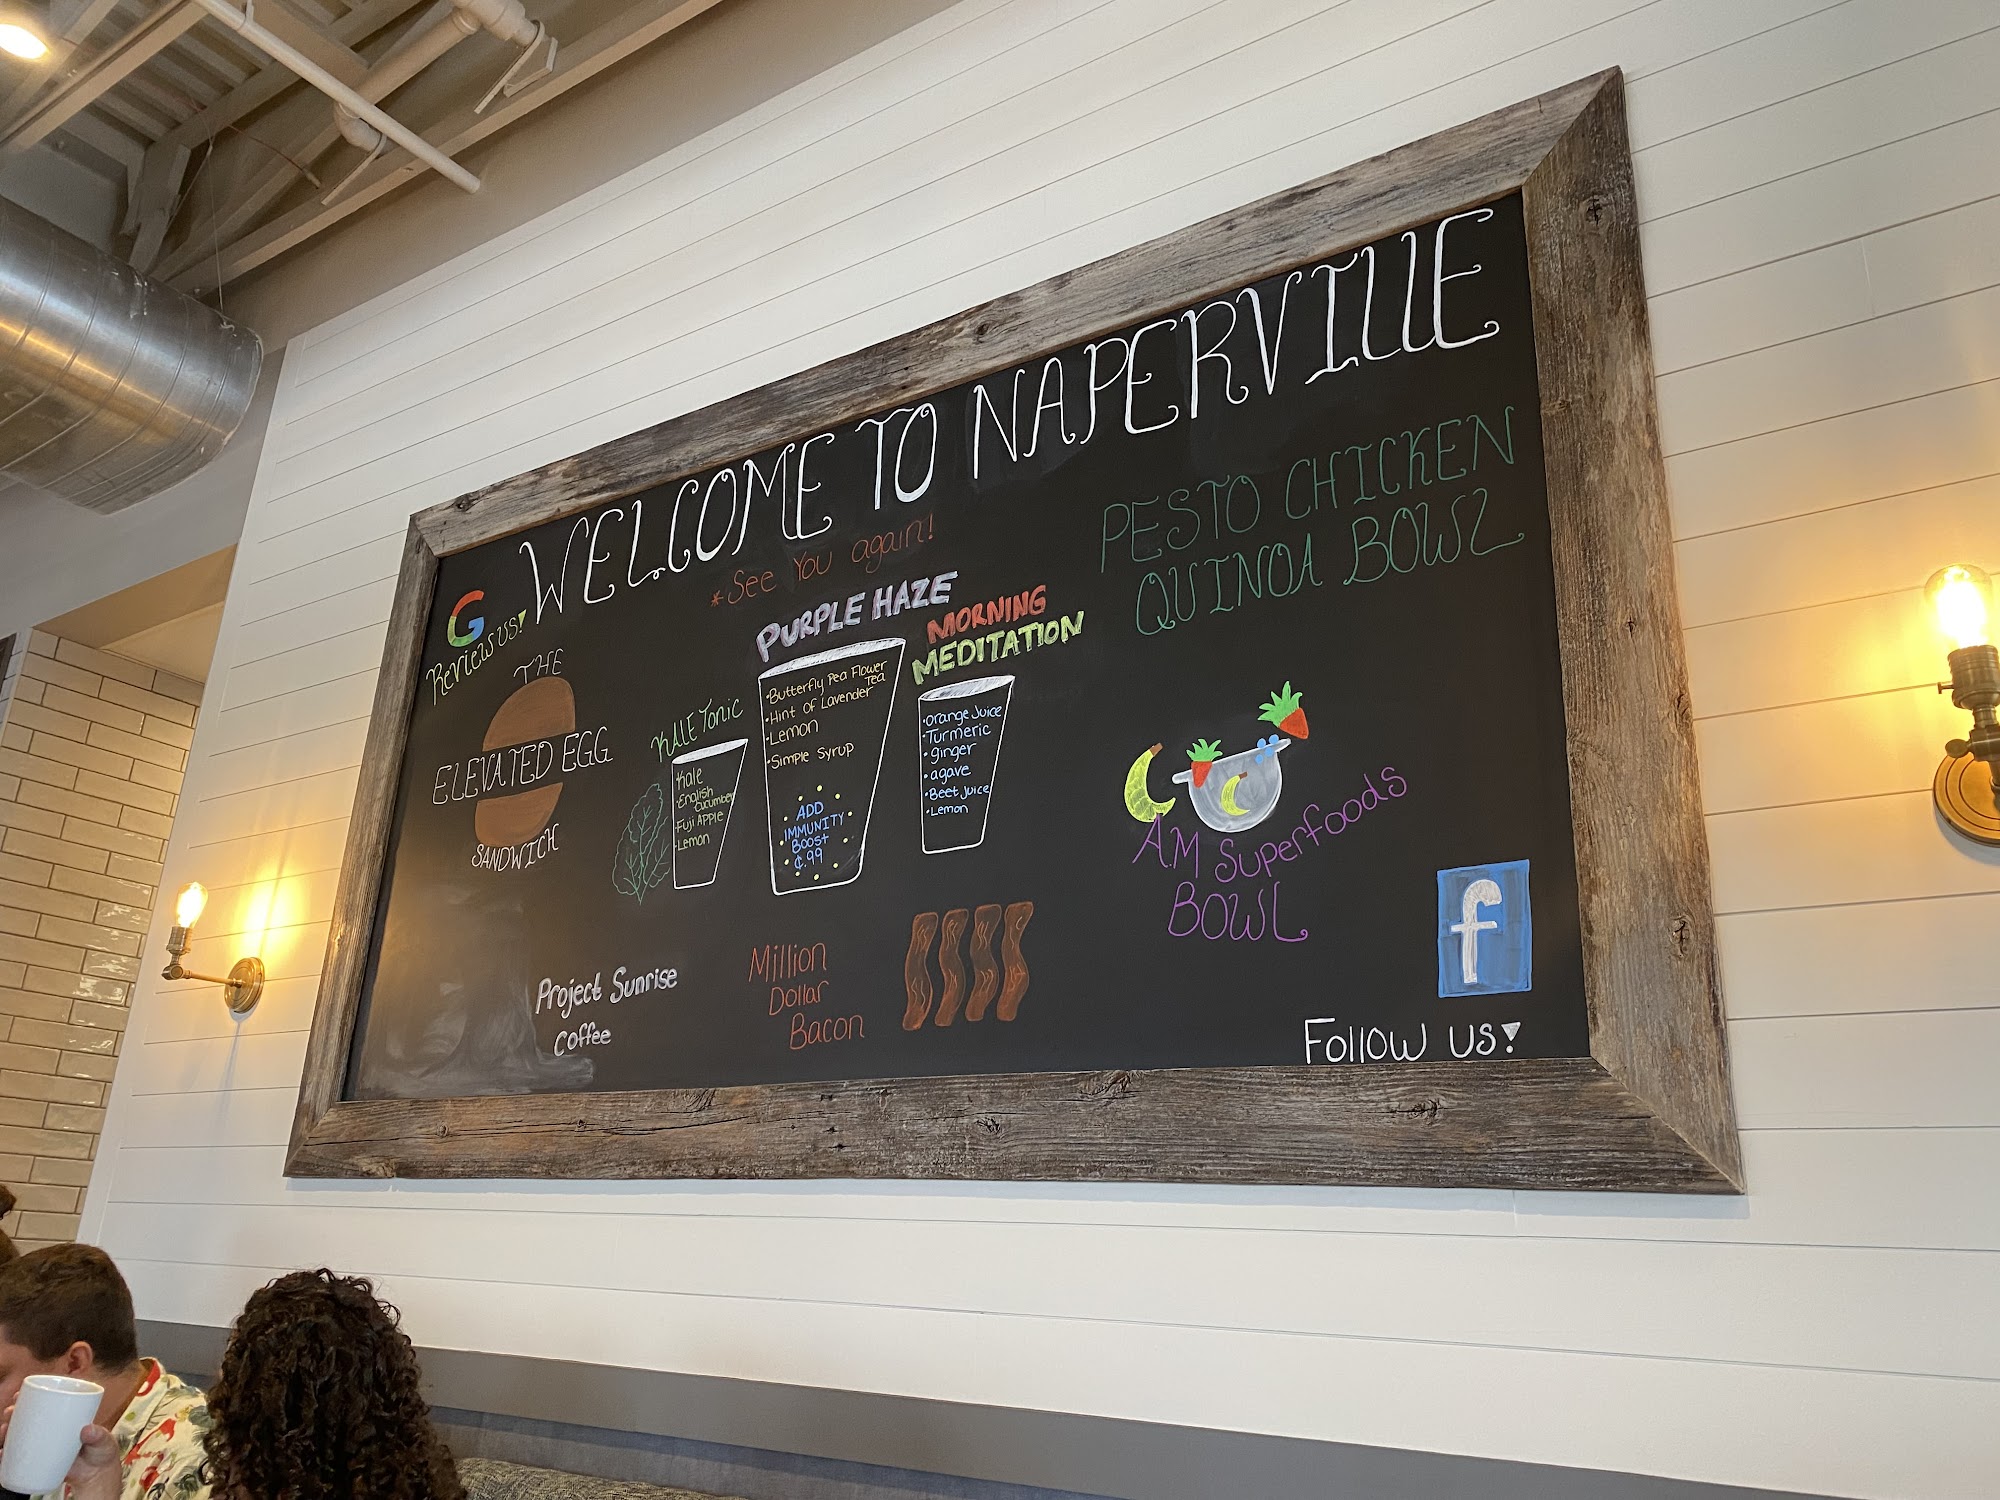 WELCOME TO NAPERVILLE
*See You again!
G
Review us!
THE
ELEVATED EGG
SANDWICH
KALE Tonic
Kale
•English
Cucumber
•Fuji APPLE
•Lemon
PURPLE HAZE
•Butterfly Pea Flower
Tea
•Hint of Lavender
•Lemon
•Simple Syrup
ADD
IMMUNITY
BOOST
¢.99
MORNING
MEDITATION
•Orange Juice
•Turmeric
•ginger
•agave
•Beet Juice
•Lemon
PESTO CHICKEN
QUINOA BOWL
A.M Superfoods
BOWL
Project Sunrise
Coffee
Million
Dollar
Bacon
f
Follow us!